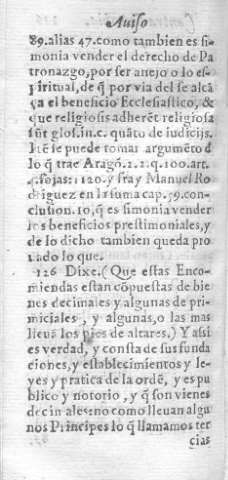 Auiſo
89.alias 47.como tambien es ſi-
monia vender el derecho de Pa
tronazgo, por ſer anejo o lo eſ-
piritual, de q̃ por via del ſe alcã
ça el beneficio Eccleſiaſtico, &
que religioſis adherẽt religioſa
ſũt gloſ.in.c. quãto de iudicijs.
Itẽ ſe puede tomar argumẽto d̃
lo q̃ trae Aragõ.2.2.q.100.art.
4.fojas:1120.y fray Manuel Ro
driguez en la ſuma cap.59.con-
cluſion.10,q̃ es ſimonia vender
los beneficios preſtimoniales,y
de lo dicho tambien queda pro
uado lo que.
126 Dixe.(Que eſtas Enco-
miendas eſtan cõpueſtas de bie
nes decimales y algunas de pri-
miciales , y algunas,o las mas
lleuã los pies de altares.) Y aſsi
es verdad, y conſta de ſus funda
ciones,y eſtablecimientos y le-
yes y pratica de la ordẽ, y es pu
blico y notorio , y q̃ ſon vienes
decimales no como lleuan algu
nos Principes lo q̃ llamamos ter
cias